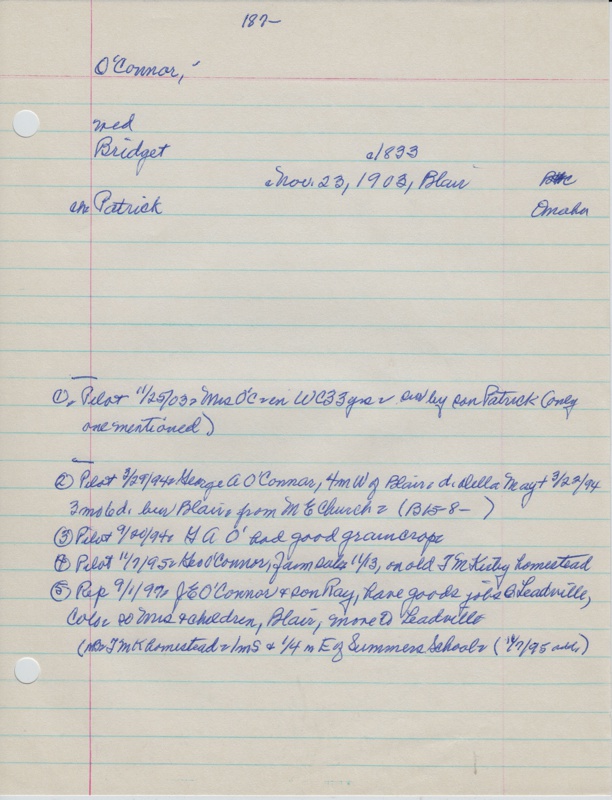 187-
O'Connor,
med
Bridget c1833
Nov. 23, 1903, Blair
Omaha
Patrick
① Pilot 11/25/03 Mrs O'C in WC 33 yrs sur by son Patrick (only
one mentioned)
② Pilot 3/29/94 George A O'Connor, 4m W of Blair d. Della May + 3/22/94
3 mo 6 d. bur Blair from M E Church (B15-8- )
③ Pilot 9/20/94 G A O' had good grain crop
④ Pilot 11/7/95 Geo O'Connor, farm sale 11/13, on old T M Kirby homestead
⑤ Rep 9/1/97 J E O'Connor & son Ray, have goods jobs @ Leadville,
Colo Mrs & children, Blair, move to Leadville
( T M K homestead 1 m S & 1/4 m E of Summers School (11/7/95 )